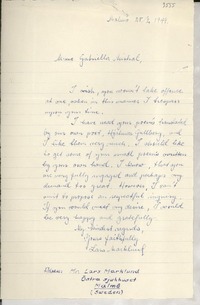 Malmö 28/2 1949.
Miss Gabriella Mistral,
I wish, you won't take offence
at me, when in this manner I trespass
upon your time.
I have read your poems translated
by our own poet, Hjalmar Gullberg, and
I like them very much. I should like
to get some of your small poems written
by your own hand. I know, that you
are very fully engaged and perhaps my
demand too great. However, I ven-
ture to project my respectful inquiry.
If you would meet my desire, I would
be very happy and gratefully.
My kindest regards,
Yours faithfully
Lars Marklund
Adress: Mr. Lars Marklund
Östra sjukhuset
Malmö
(Sweden)